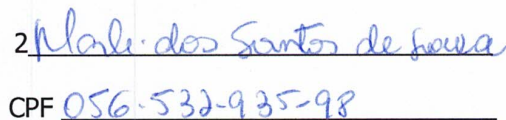 2 Marli dos Santos de Souza
CPF 056-532-935-98